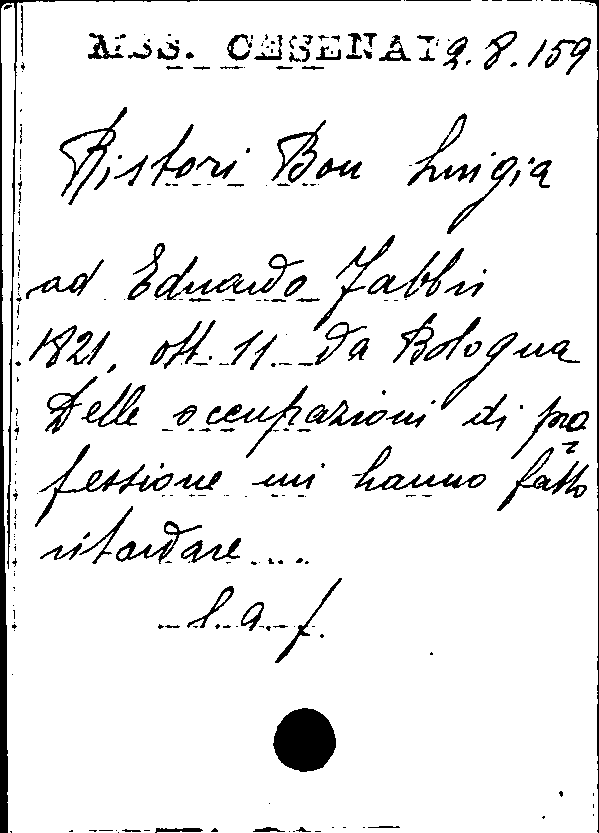 MSS. CESENATI 2.8.159
Ristori Bon Luigia
ad Eduardo Fabbri
1821, ott. 11. da Bologna
Delle occupazioni di pro=
fessione mi hanno fatto
ritardare....
l. a. f.